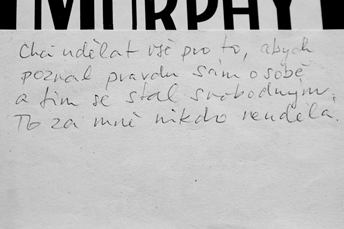 MURPHY
Chci udělat vše pro to, abych
poznal pravdu sám o sobě
a tím se stal svobodným.
To za mně nikdo neudělá.